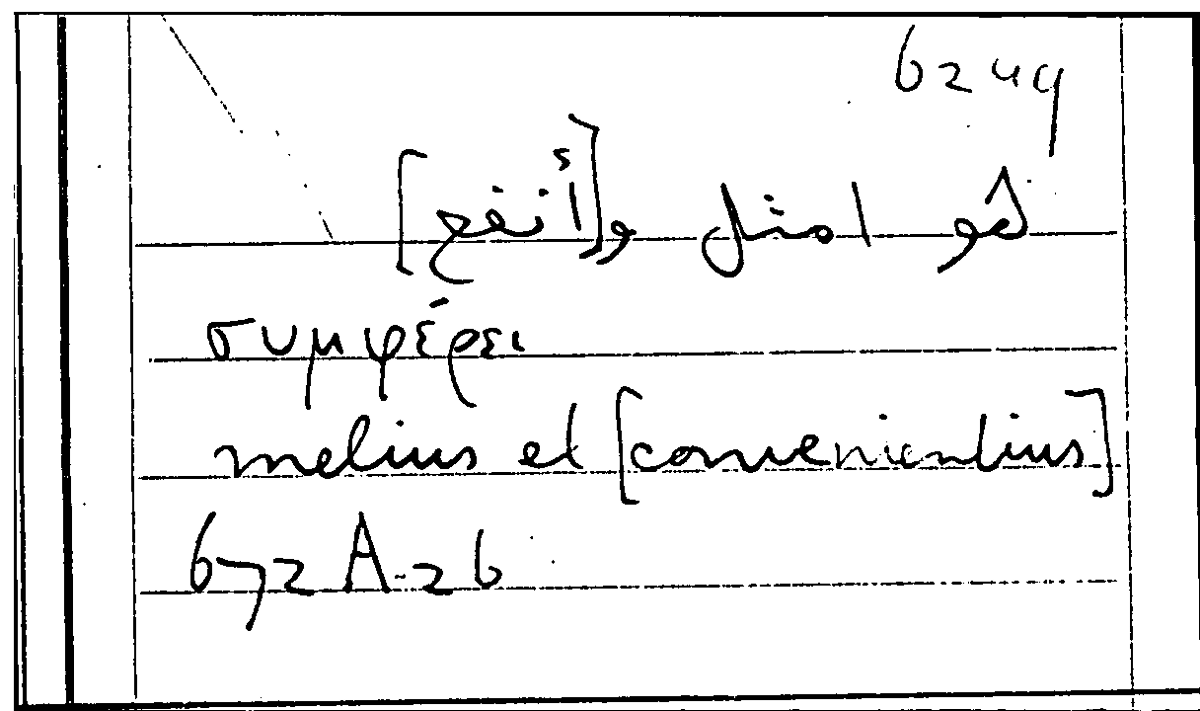 6249
هو امثل و[أنفع]
συμφέρει
melius et [convenientius]
672 A-26